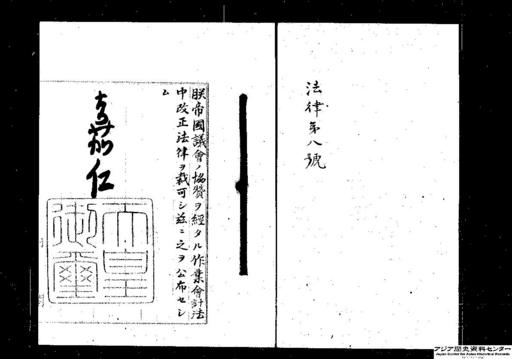 法律第八號
朕帝國議會ノ協贊ヲ經タル作業會計法
中改正法律ヲ裁可シ茲ニ之ヲ公布セシ
ム
嘉仁
天皇御璽
アジア歴史資料センター
Japan Center for Asian Historical Records